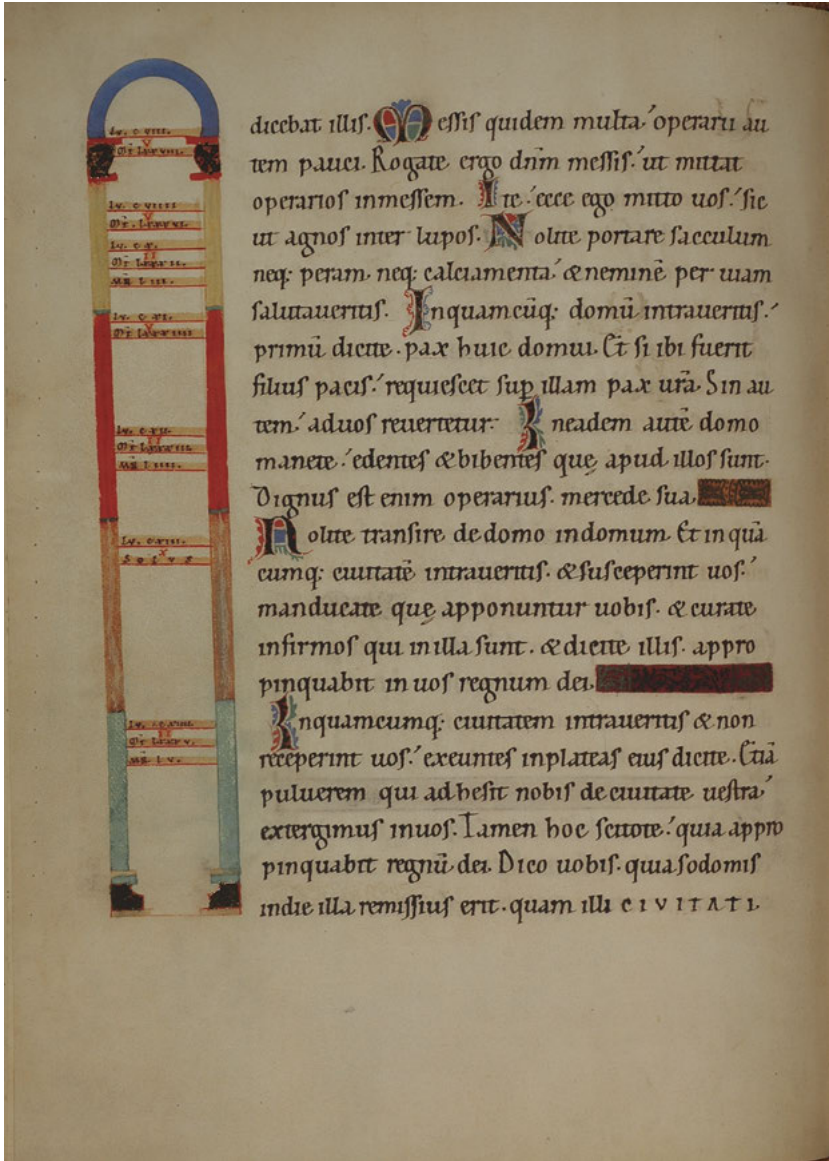 dicebat illis. Messis quidem multa. operarii au
tem pauci. Rogate ergo dn̄m messis. ut mittat
operarios inmessem. Ite. ecce ego mitto uos. sic
ut agnos inter lupos. Nolite portare sacculum
neq; peram. neq; calciamenta. & neminē per uiam
salutaueritis. Inquamcūq; domū intraueritis.
primū dicite. pax huic domui. Et si ibi fuerit
filius pacis. requiescet sup illam pax urā. Sin au
tem. aduos reuertetur. Ineadem autē domo
manete. edentes & bibentes quę apud illos sunt.
Dignus est enim operarius. mercede sua.
Nolite transire dedomo indomum. Et in quā
cumq; ciuitatē intraueritis. & susceperint uos.
manducate quę apponuntur uobis. & curate
infirmos qui inilla sunt. & dicite illis. appro
pinquabit in uos regnum dei.
Inquamcumq; ciuitatem intraueritis & non
receperint uos. exeuntes inplateas eius dicite. Etiā
puluerem qui adhesit nobis deciuitate uestra
extergimus inuos. Tamen hoc scitote. quia appro
pinquabit regnū dei. Dico uobis. quia sodomis
indie illa remissius erit. quam illi CIVITATI.